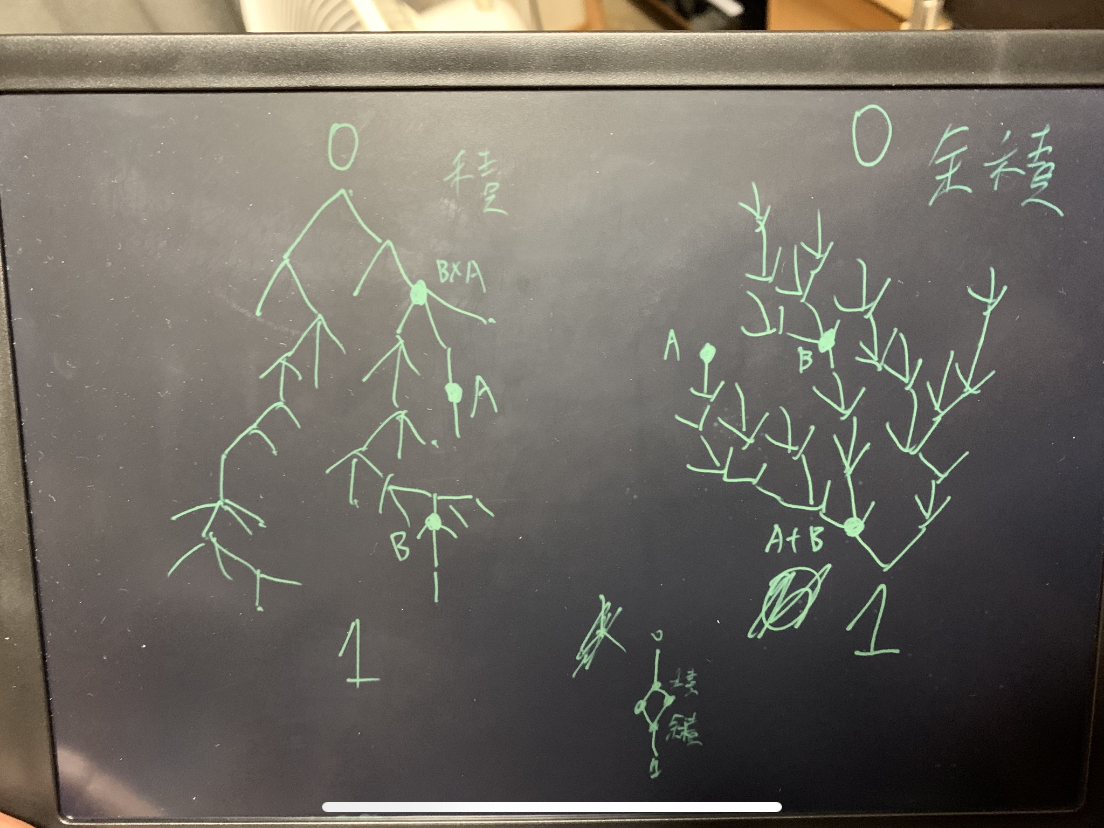 0
積
B×A
A
B
1
0
余積
A
B
A+B
1
0
積
余積
1